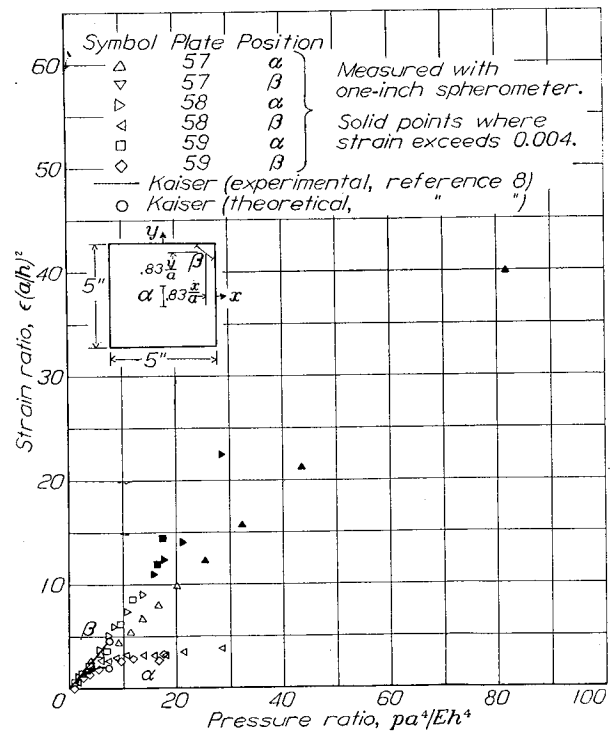 Symbol Plate Position
△ 57 α
▽ 57 β
▷ 58 α
◁ 58 β
□ 59 α
◇ 59 β
Measured with
one-inch spherometer.
Solid points where
strain exceeds 0.004.
Kaiser (experimental, reference 8)
○ Kaiser (theoretical, " ")
60
50
40
30
20
10
0
Strain ratio, ϵ(a/h)²
y
.83 y/a β
α .83 x/a
x
5"
5"
β
α
0 20 40 60 80 100
Pressure ratio, pa⁴/Eh⁴